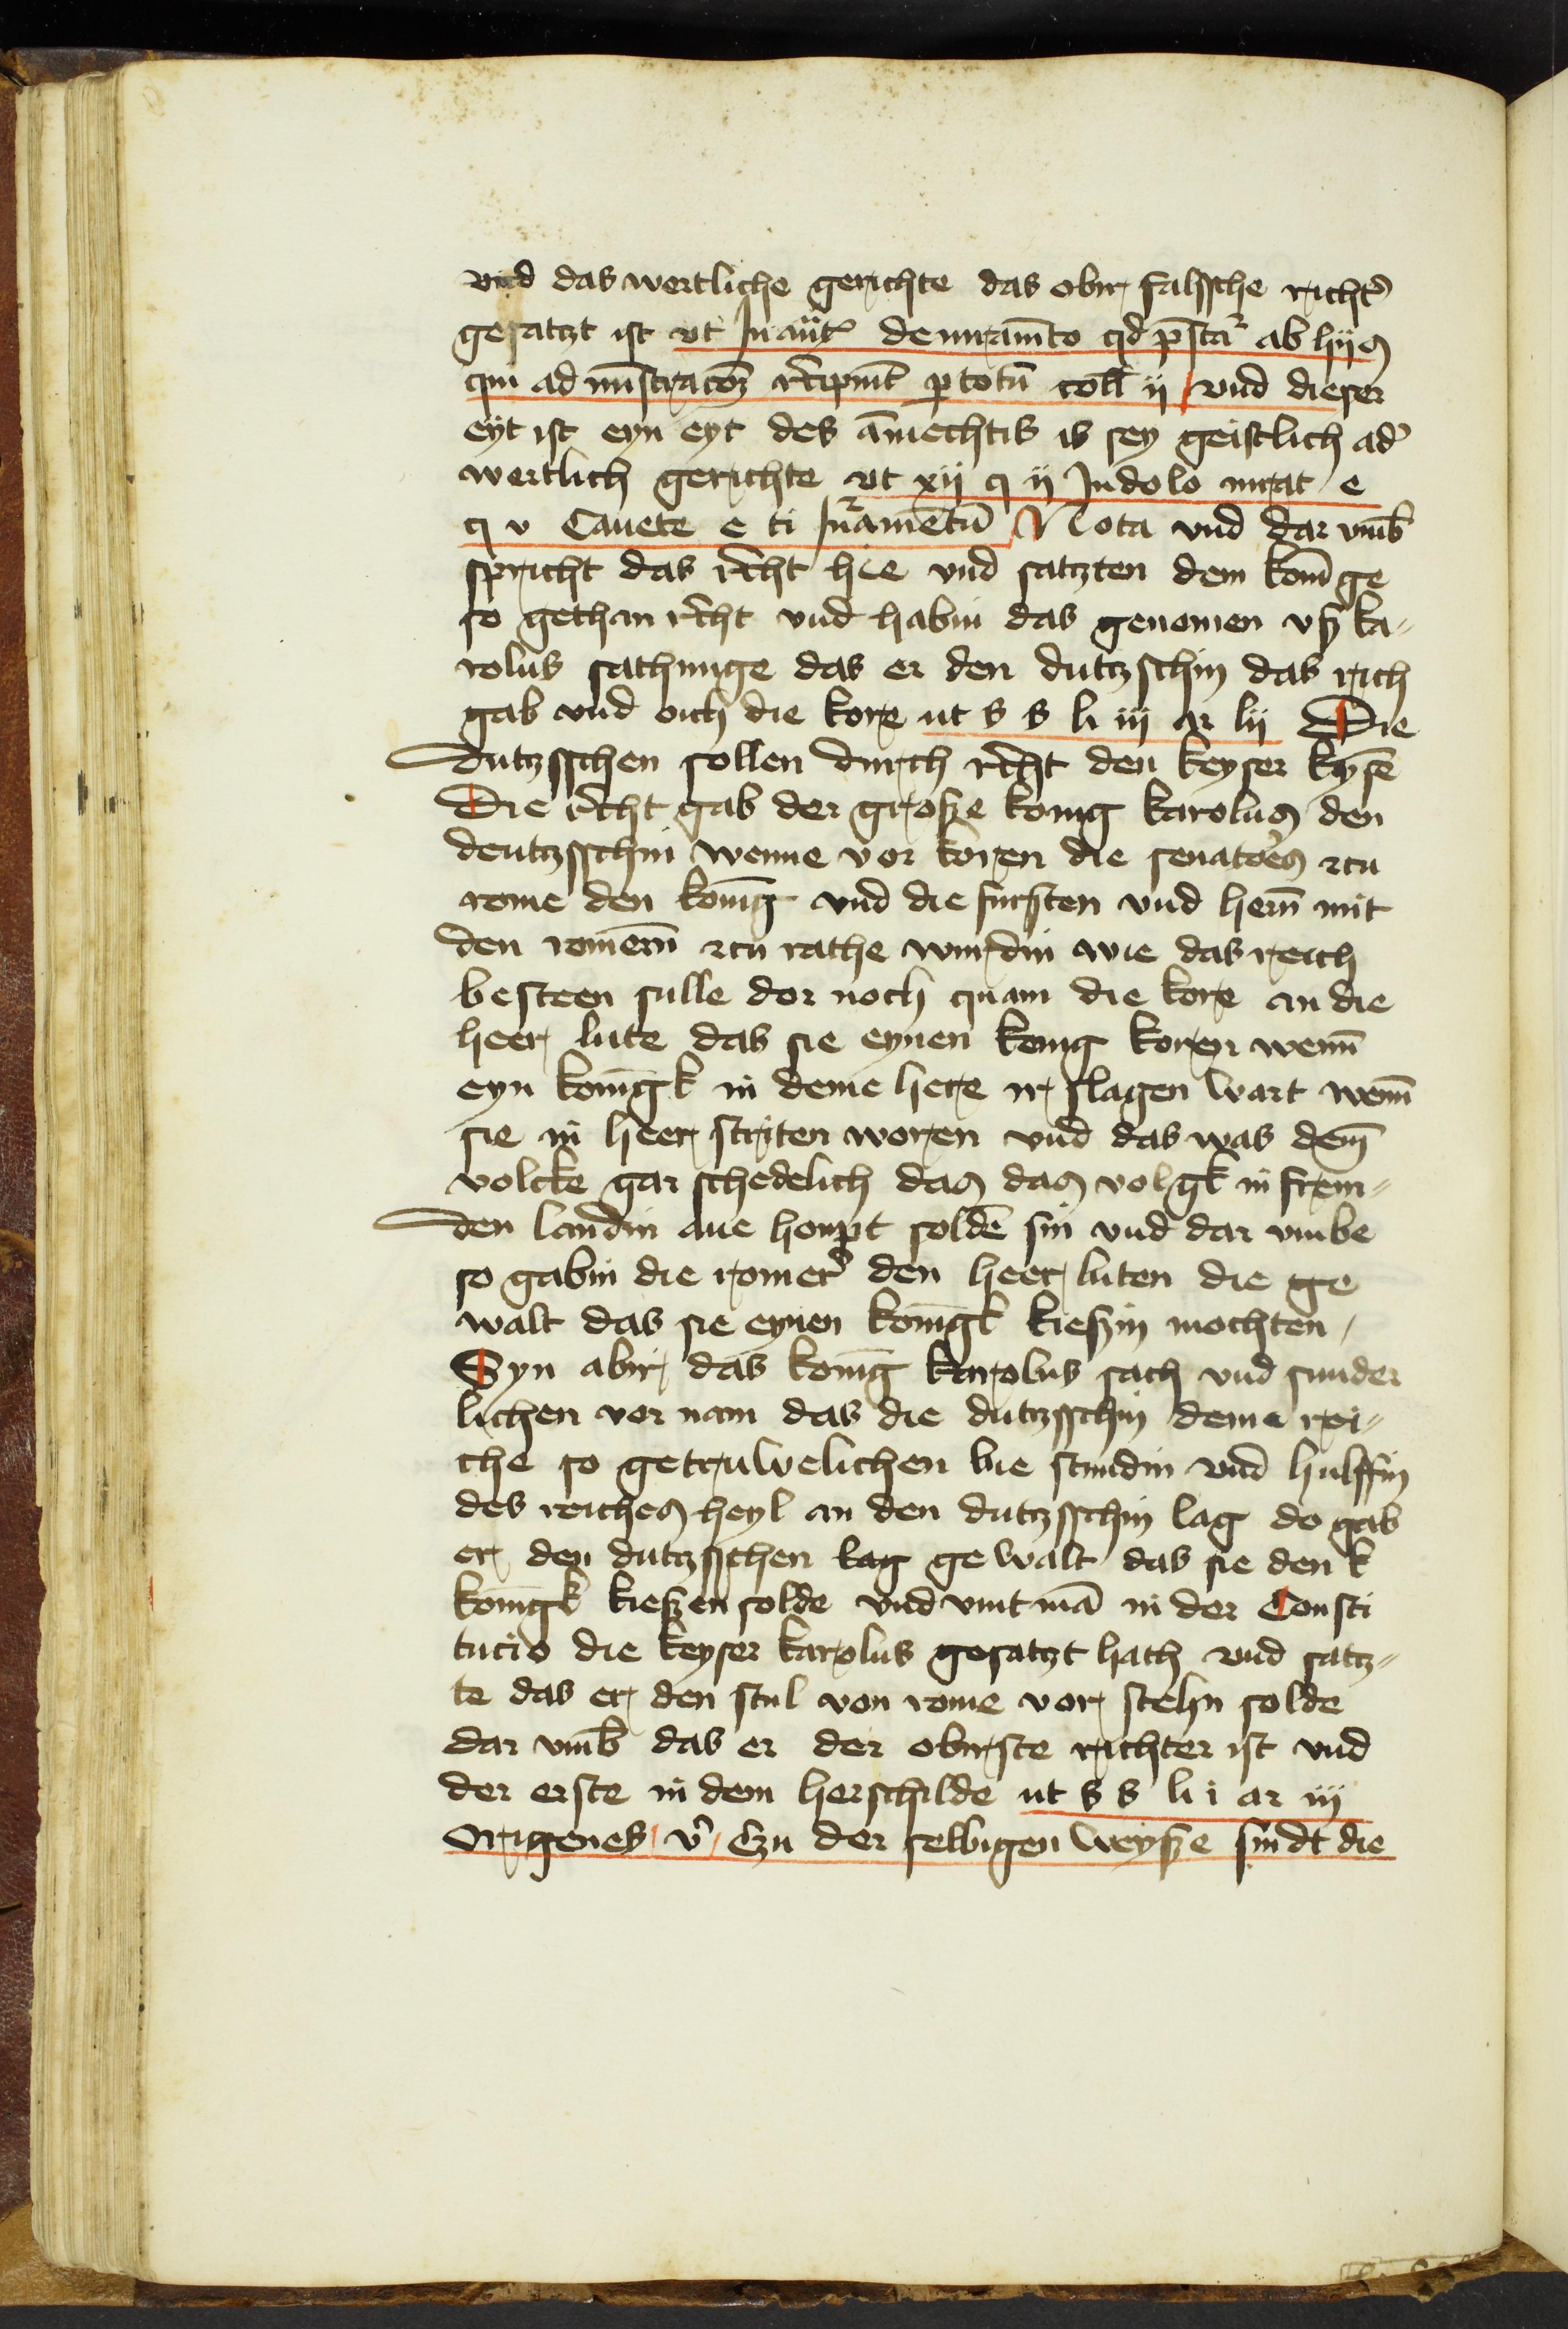 vnd das wertliche gerichte das obir falssche richt᷒
gesatzt ist vt In aut̄ᷣ de iuram̄to qd̄ p̄statᷣ ab hijs
qui ad mīstracōȝ rc̄ipiūt p totū coll̄ ij vnd dieser
eyt ist eyn eyt des āmechtis is sey geistlich ad᷒
wertlich gerichte vt xij q ij In dolo iurat e
q v Cauete e ti Iuramētū Nota vnd dar vmb̄
spricht das rc̄ht hie vnd satzten dem kon̄ige
so gethan rc̄ht vnd habin das genomen vß ka-
rolus sathunge das er den dutzschin das rich
gab vnd oich die kore ut s s li iij ar lij Die
dutzsschen sollen durch rc̄ht den keyser kysē
Die rc̄ht gab der große konig karolus den
deutzsschin wenne vor koren die senatōes zcu
rome den kon̄ig vnd die fursten vnd hern̄ mit
den romern̄ zcu rathe wurdin wie das reich
besteen sulle dor noch quam die kore an die
heer lute das sie eynen konig koren wenn̄
eyn kon̄igk in deme here ir slagen wart wenn̄
sie in heer striten woren vnd das was dem̄
volcke gar schedelich das das volgk in frem-
den landin ane houpt soldē sin vnd dar vmbe
so gabin die romer᷒ den heer luten die ge
walt das sie eynen kon̄igk kieszin mochten /
Syn abir das kon̄ig karolus sach vnd sunder
lichen vor nam das die dutzsschin deme rei-
che so getruwelichen bie stundin vnd hulffin
des reiches heyl an den dutzsschin lag do gab
er den dutzsschen lag gewalt das sie den k
kon̄igk kieszen solde vnd vint mā in der Consti
tucio die keyser karolus gesatzt hath vnd satz-
te das er den stul von rome vor stehn solde
dar vmb̄ das er der obirste richter ist vnd
der erste in dem herschilde ut s s li i ar iij
Origenes / v᷒ / Czu der selbigen weysze sindt die